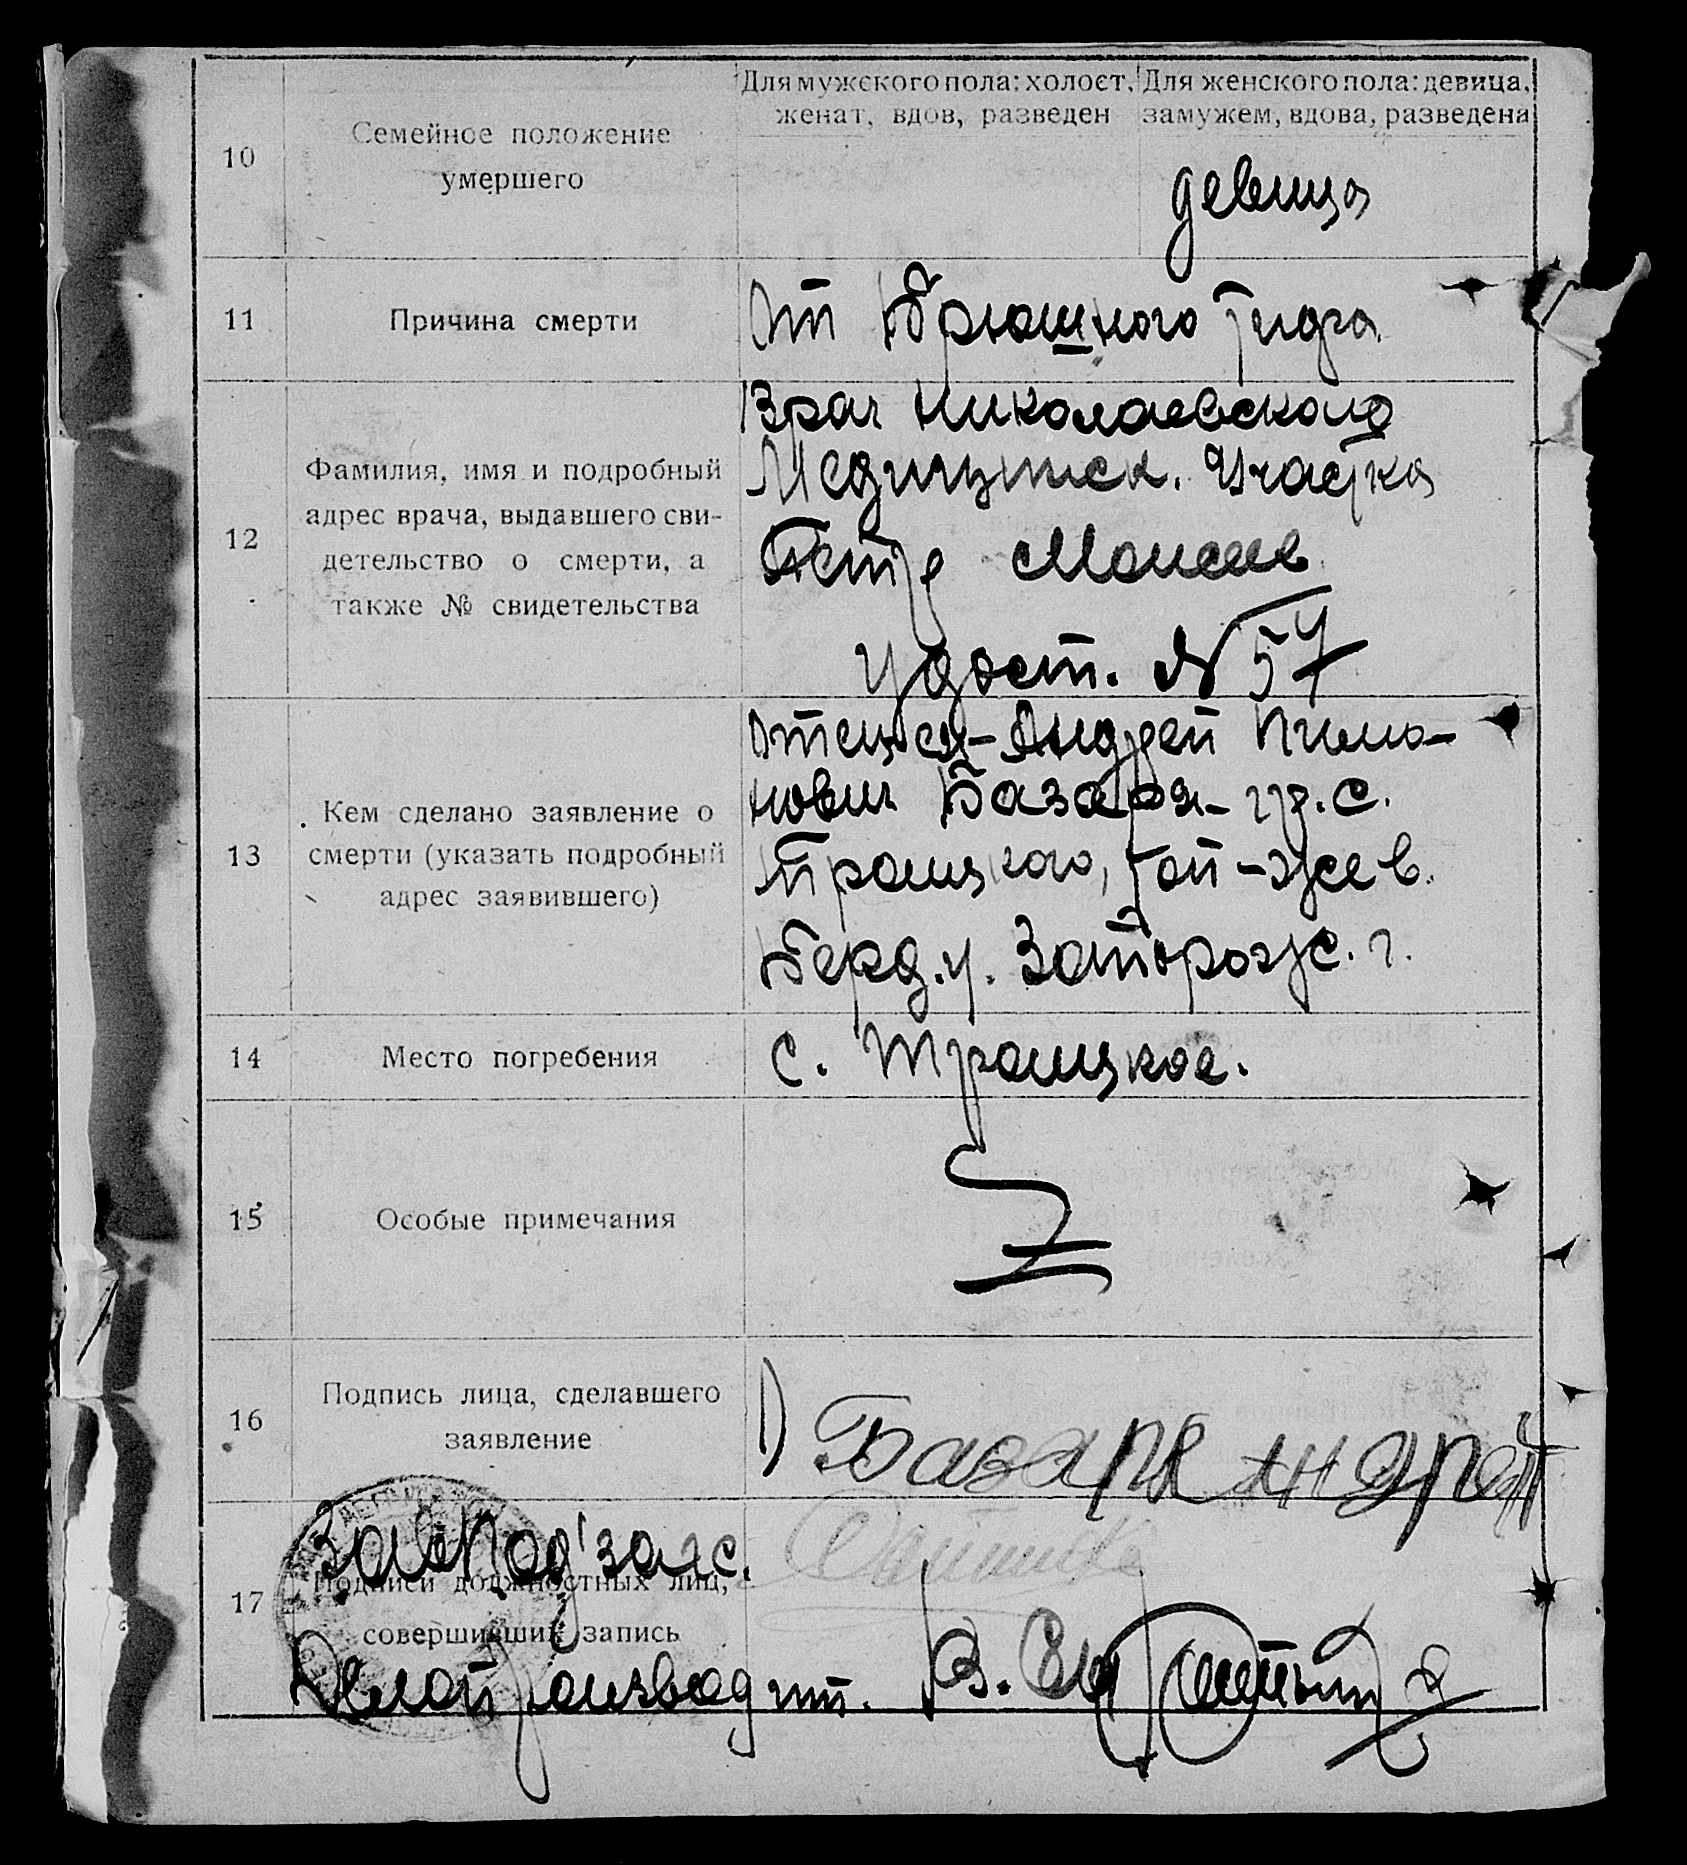 Для мужского пола: холост, женат, вдов, разведен
Для женского пола: девица, замужем, вдова, разведена
10
Семейное положение
умершего
девица
11
Причина смерти
От брюшного тифа
12
Фамилия, имя и подробный
адрес врача, выдавшего сви-
детельство о смерти, а
также № свидетельства
Врач Николаевского
Медицинск. Участка
Петр Моисеев
Удост. № 57
13
Кем сделано заявление о
смерти (указать подробный
адрес заявившего)
Отец ея - Андрей Пима-
нович Базаря - гр. с.
Троицкого, той-же в.
Берд. у. Запорож. г.
14
Место погребения
с. Троицкое.
15
Особые примечания
16
Подпись лица, сделавшего
заявление
1) Базаря Андрей
17
Зав Под'загс.
Подписи должностных лиц,
совершивших запись
Делопроизводит. В.